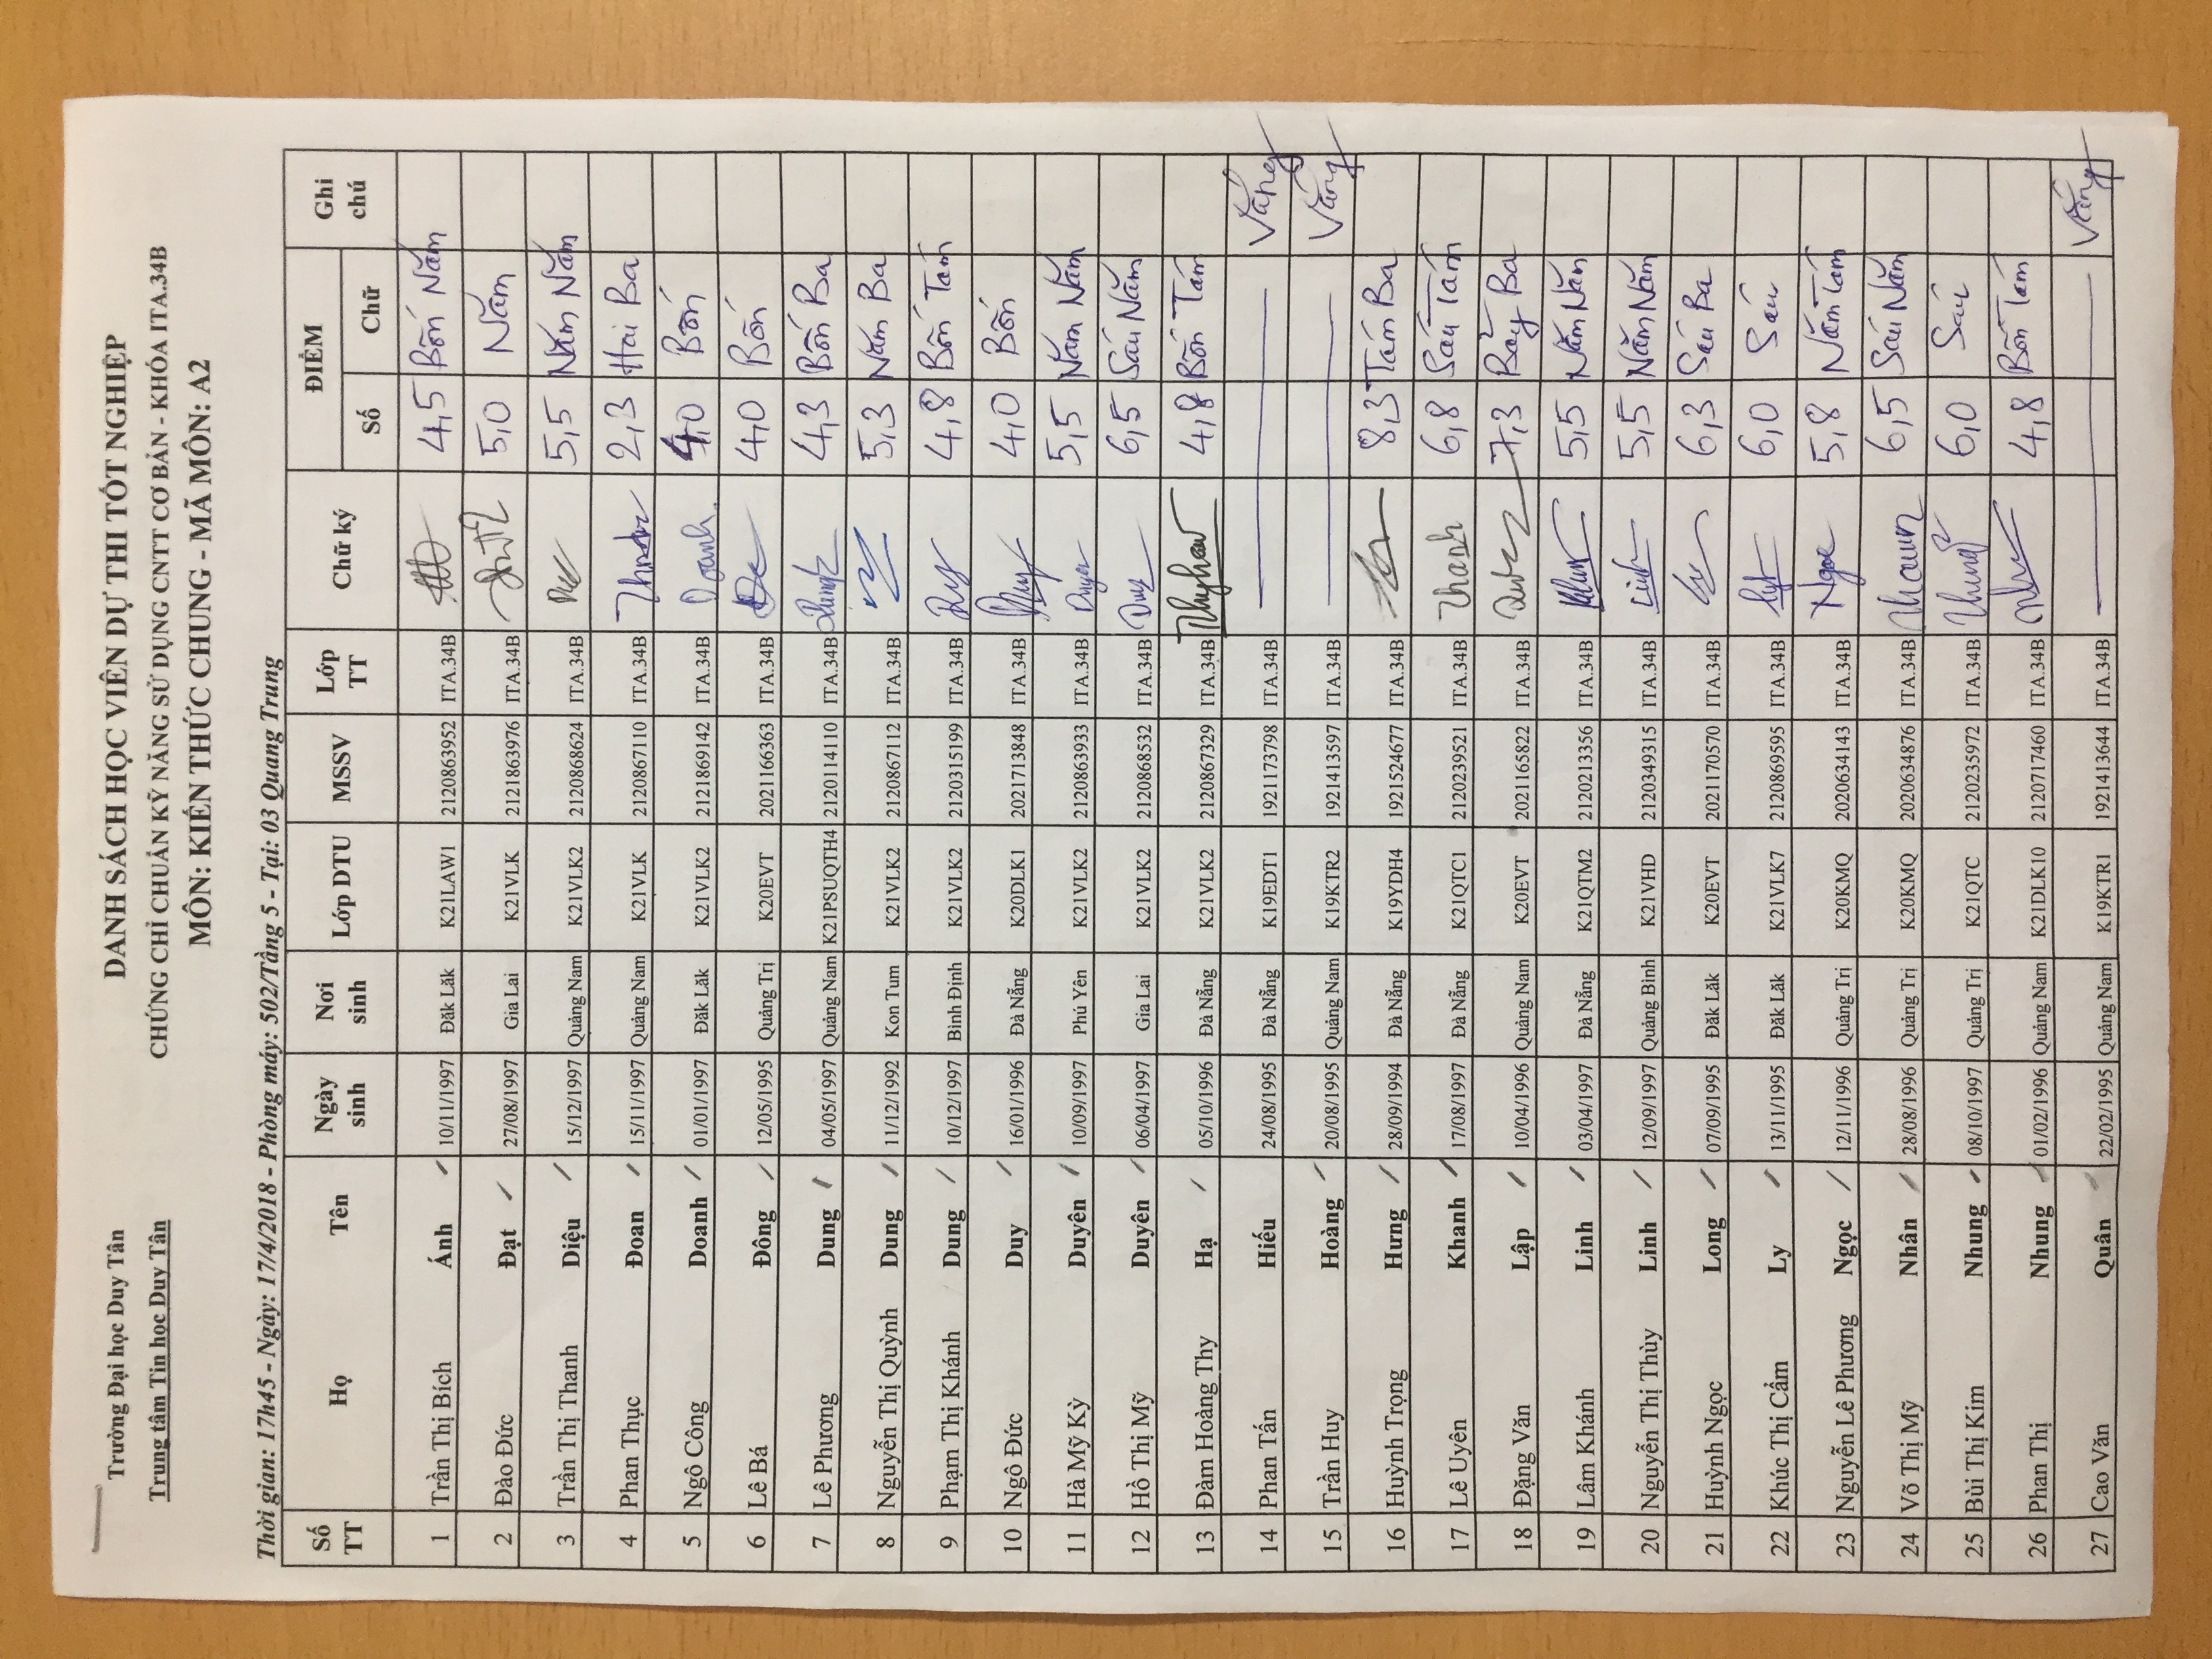 Trường Đại học Duy Tân
Trung tâm Tin học Duy Tân
DANH SÁCH HỌC VIÊN DỰ THI TỐT NGHIỆP
CHỨNG CHỈ CHUẨN KỸ NĂNG SỬ DỤNG CNTT CƠ BẢN - KHÓA ITA.34B
MÔN: KIẾN THỨC CHUNG - MÃ MÔN: A2
Thời gian: 17h45 - Ngày: 17/4/2018 - Phòng máy: 502/Tầng 5 - Tại: 03 Quang Trung
Số TT Họ Tên Ngày sinh Nơi sinh Lớp DTU MSSV Lớp TT Chữ ký ĐIỂM Ghi chú
Số Chữ
1 Trần Thị Bích Ánh 10/11/1997 Đăk Lăk K21LAW1 2120863952 ITA.34B 4,5 Bốn Năm
2 Đào Đức Đạt 27/08/1997 Gia Lai K21VLK 2121863976 ITA.34B 5,0 Năm
3 Trần Thị Thanh Diệu 15/12/1997 Quảng Nam K21VLK2 2120868624 ITA.34B 5,5 Năm Năm
4 Phan Thục Đoan 15/11/1997 Quảng Nam K21VLK 2120867110 ITA.34B 2,3 Hai Ba
5 Ngô Công Doanh 01/01/1997 Đăk Lăk K21VLK2 2121869142 ITA.34B Doanh 4,0 Bốn
6 Lê Bá Đông 12/05/1995 Quảng Trị K20EVT 2021166363 ITA.34B 4,0 Bốn
7 Lê Phương Dung 04/05/1997 Quảng Nam K21PSUQTH4 2120114110 ITA.34B 4,3 Bốn Ba
8 Nguyễn Thị Quỳnh Dung 11/12/1992 Kon Tum K21VLK2 2120867112 ITA.34B 5,3 Năm Ba
9 Phạm Thị Khánh Dung 10/12/1997 Bình Định K21VLK2 2120315199 ITA.34B 4,8 Bốn Tám
10 Ngô Đức Duy 16/01/1996 Đà Nẵng K20DLK1 2021713848 ITA.34B Duy 4,0 Bốn
11 Hà Mỹ Kỳ Duyên 10/09/1997 Phú Yên K21VLK2 2120863933 ITA.34B Duyen 5,5 Năm Năm
12 Hồ Thị Mỹ Duyên 06/04/1997 Gia Lai K21VLK2 2120868532 ITA.34B 6,5 Sáu Năm
13 Đàm Hoàng Thy Hạ 05/10/1996 Đà Nẵng K21VLK2 2120867329 ITA.34B 4,8 Bốn Tám
14 Phan Tấn Hiếu 24/08/1995 Đà Nẵng K19EDT1 1921173798 ITA.34B Vắng
15 Trần Huy Hoàng 20/08/1995 Quảng Nam K19KTR2 1921413597 ITA.34B Vắng
16 Huỳnh Trọng Hưng 28/09/1994 Đà Nẵng K19YDH4 1921524677 ITA.34B 8,3 Tám Ba
17 Lê Uyên Khanh 17/08/1997 Đà Nẵng K21QTC1 2120239521 ITA.34B Khanh 6,8 Sáu Tám
18 Đặng Văn Lập 10/04/1996 Quảng Nam K20EVT 2021165822 ITA.34B 7,3 Bảy Ba
19 Lâm Khánh Linh 03/04/1997 Đà Nẵng K21QTM2 2120213356 ITA.34B 5,5 Năm Năm
20 Nguyễn Thị Thùy Linh 12/09/1997 Quảng Bình K21VHD 2120349315 ITA.34B Linh 5,5 Năm Năm
21 Huỳnh Ngọc Long 07/09/1995 Đăk Lăk K20EVT 2021170570 ITA.34B 6,3 Sáu Ba
22 Khúc Thị Cẩm Ly 13/11/1995 Đăk Lăk K21VLK7 2120869595 ITA.34B 6,0 Sáu
23 Nguyễn Lê Phương Ngọc 12/11/1996 Quảng Trị K20KMQ 2020634143 ITA.34B Ngọc 5,8 Năm Tám
24 Võ Thị Mỹ Nhân 28/08/1996 Quảng Trị K20KMQ 2020634876 ITA.34B 6,5 Sáu Năm
25 Bùi Thị Kim Nhung 08/10/1997 Quảng Trị K21QTC 2120235972 ITA.34B Nhung 6,0 Sáu
26 Phan Thị Nhung 01/02/1996 Quảng Nam K21DLK10 2120717460 ITA.34B 4,8 Bốn Tám
27 Cao Văn Quân 22/02/1995 Quảng Nam K19KTR1 1921413644 ITA.34B Vắng